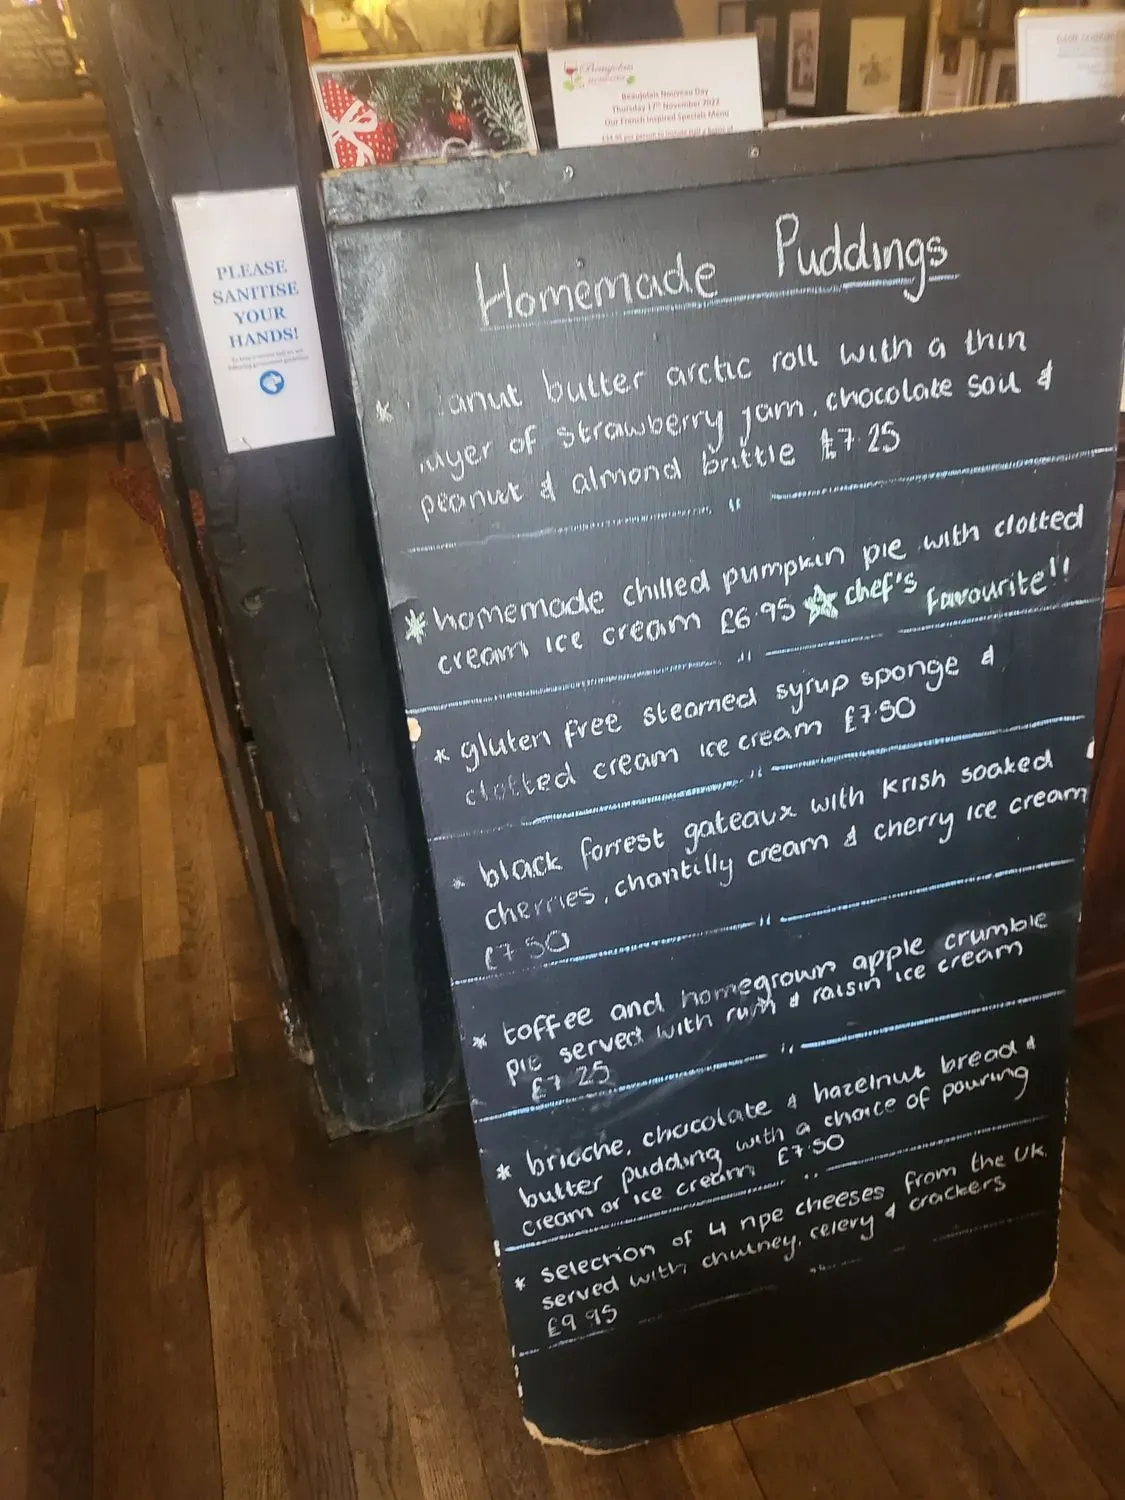 Beaujolais Nouveau Day
Thursday 17th November 2022
Our French Inspired Specials Menu
PLEASE
SANITISE
YOUR
HANDS!
Homemade Puddings
* anut butter arctic roll with a thin
layer of strawberry jam, chocolate soil &
peanut & almond brittle £7.25
"
* homemade chilled pumpkin pie with clotted
cream ice cream £6.95 ☆ chef's favourite!!
"
* gluten free steamed syrup sponge &
clotted cream ice cream £7.50
"
* black forrest gateaux with Krish soaked
cherries, chantilly cream & cherry ice cream
£7.50
"
* toffee and homegrown apple crumble
pie served with rum & raisin ice cream
£7.25
"
* brioche, chocolate & hazelnut bread &
butter pudding with a choice of pouring
cream or ice cream £7.50
"
* selection of 4 npe cheeses from the UK,
served with chutney, celery & crackers
£9.95